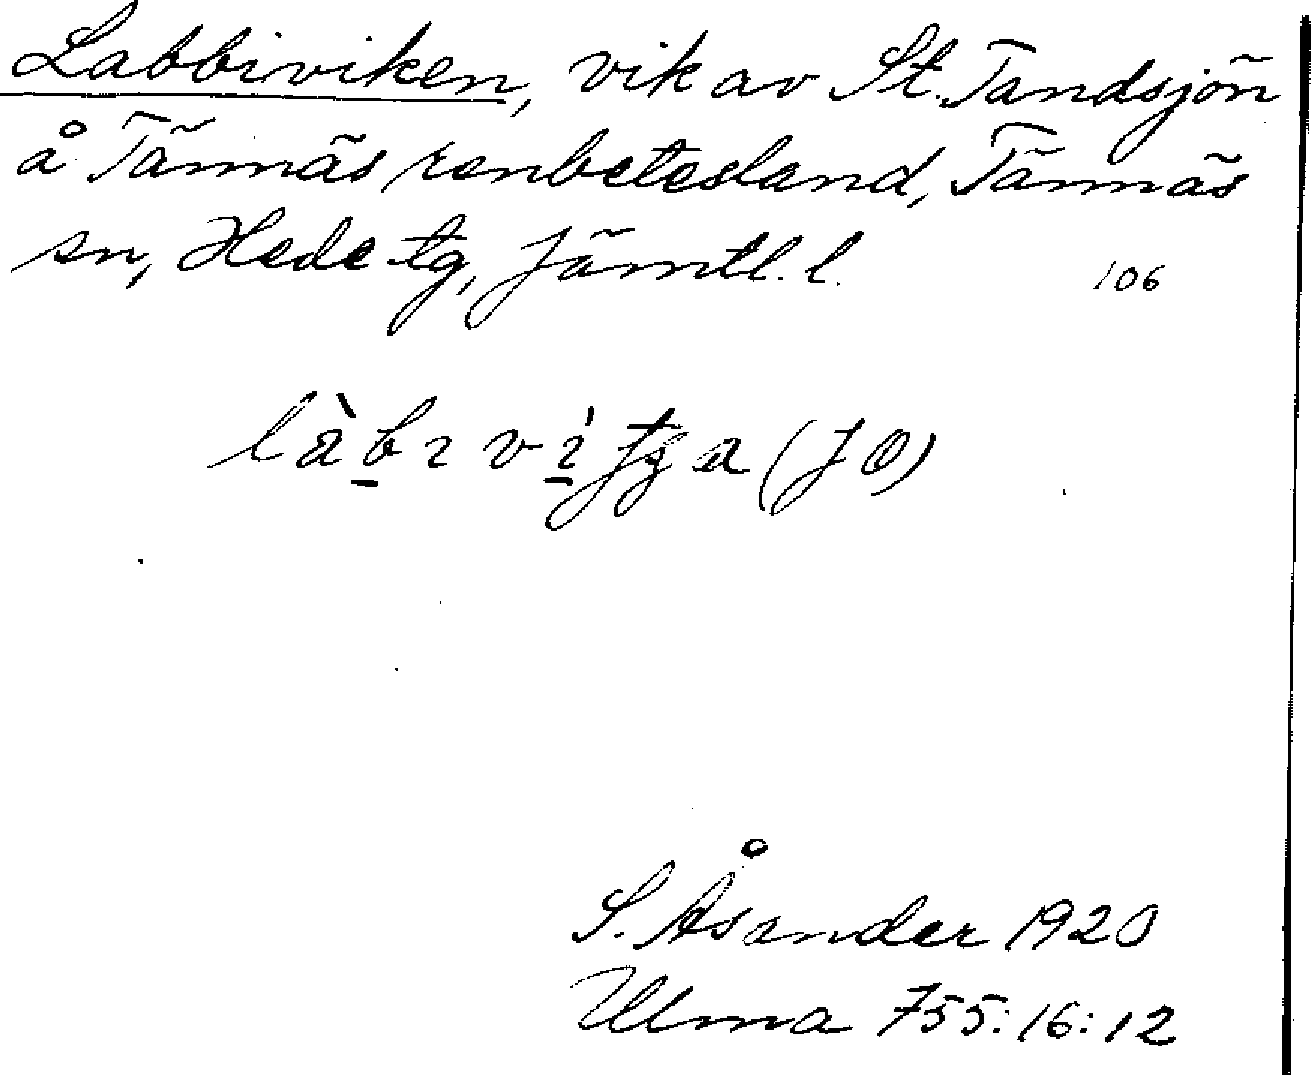 Labbiviken, vik av St. Tandsjön
å Tännäs renbetesland, Tännäs
sn, Hede tg, Jämtl. l.
106
(JO)
S. Åsander 1920
Ulma 755:16:12